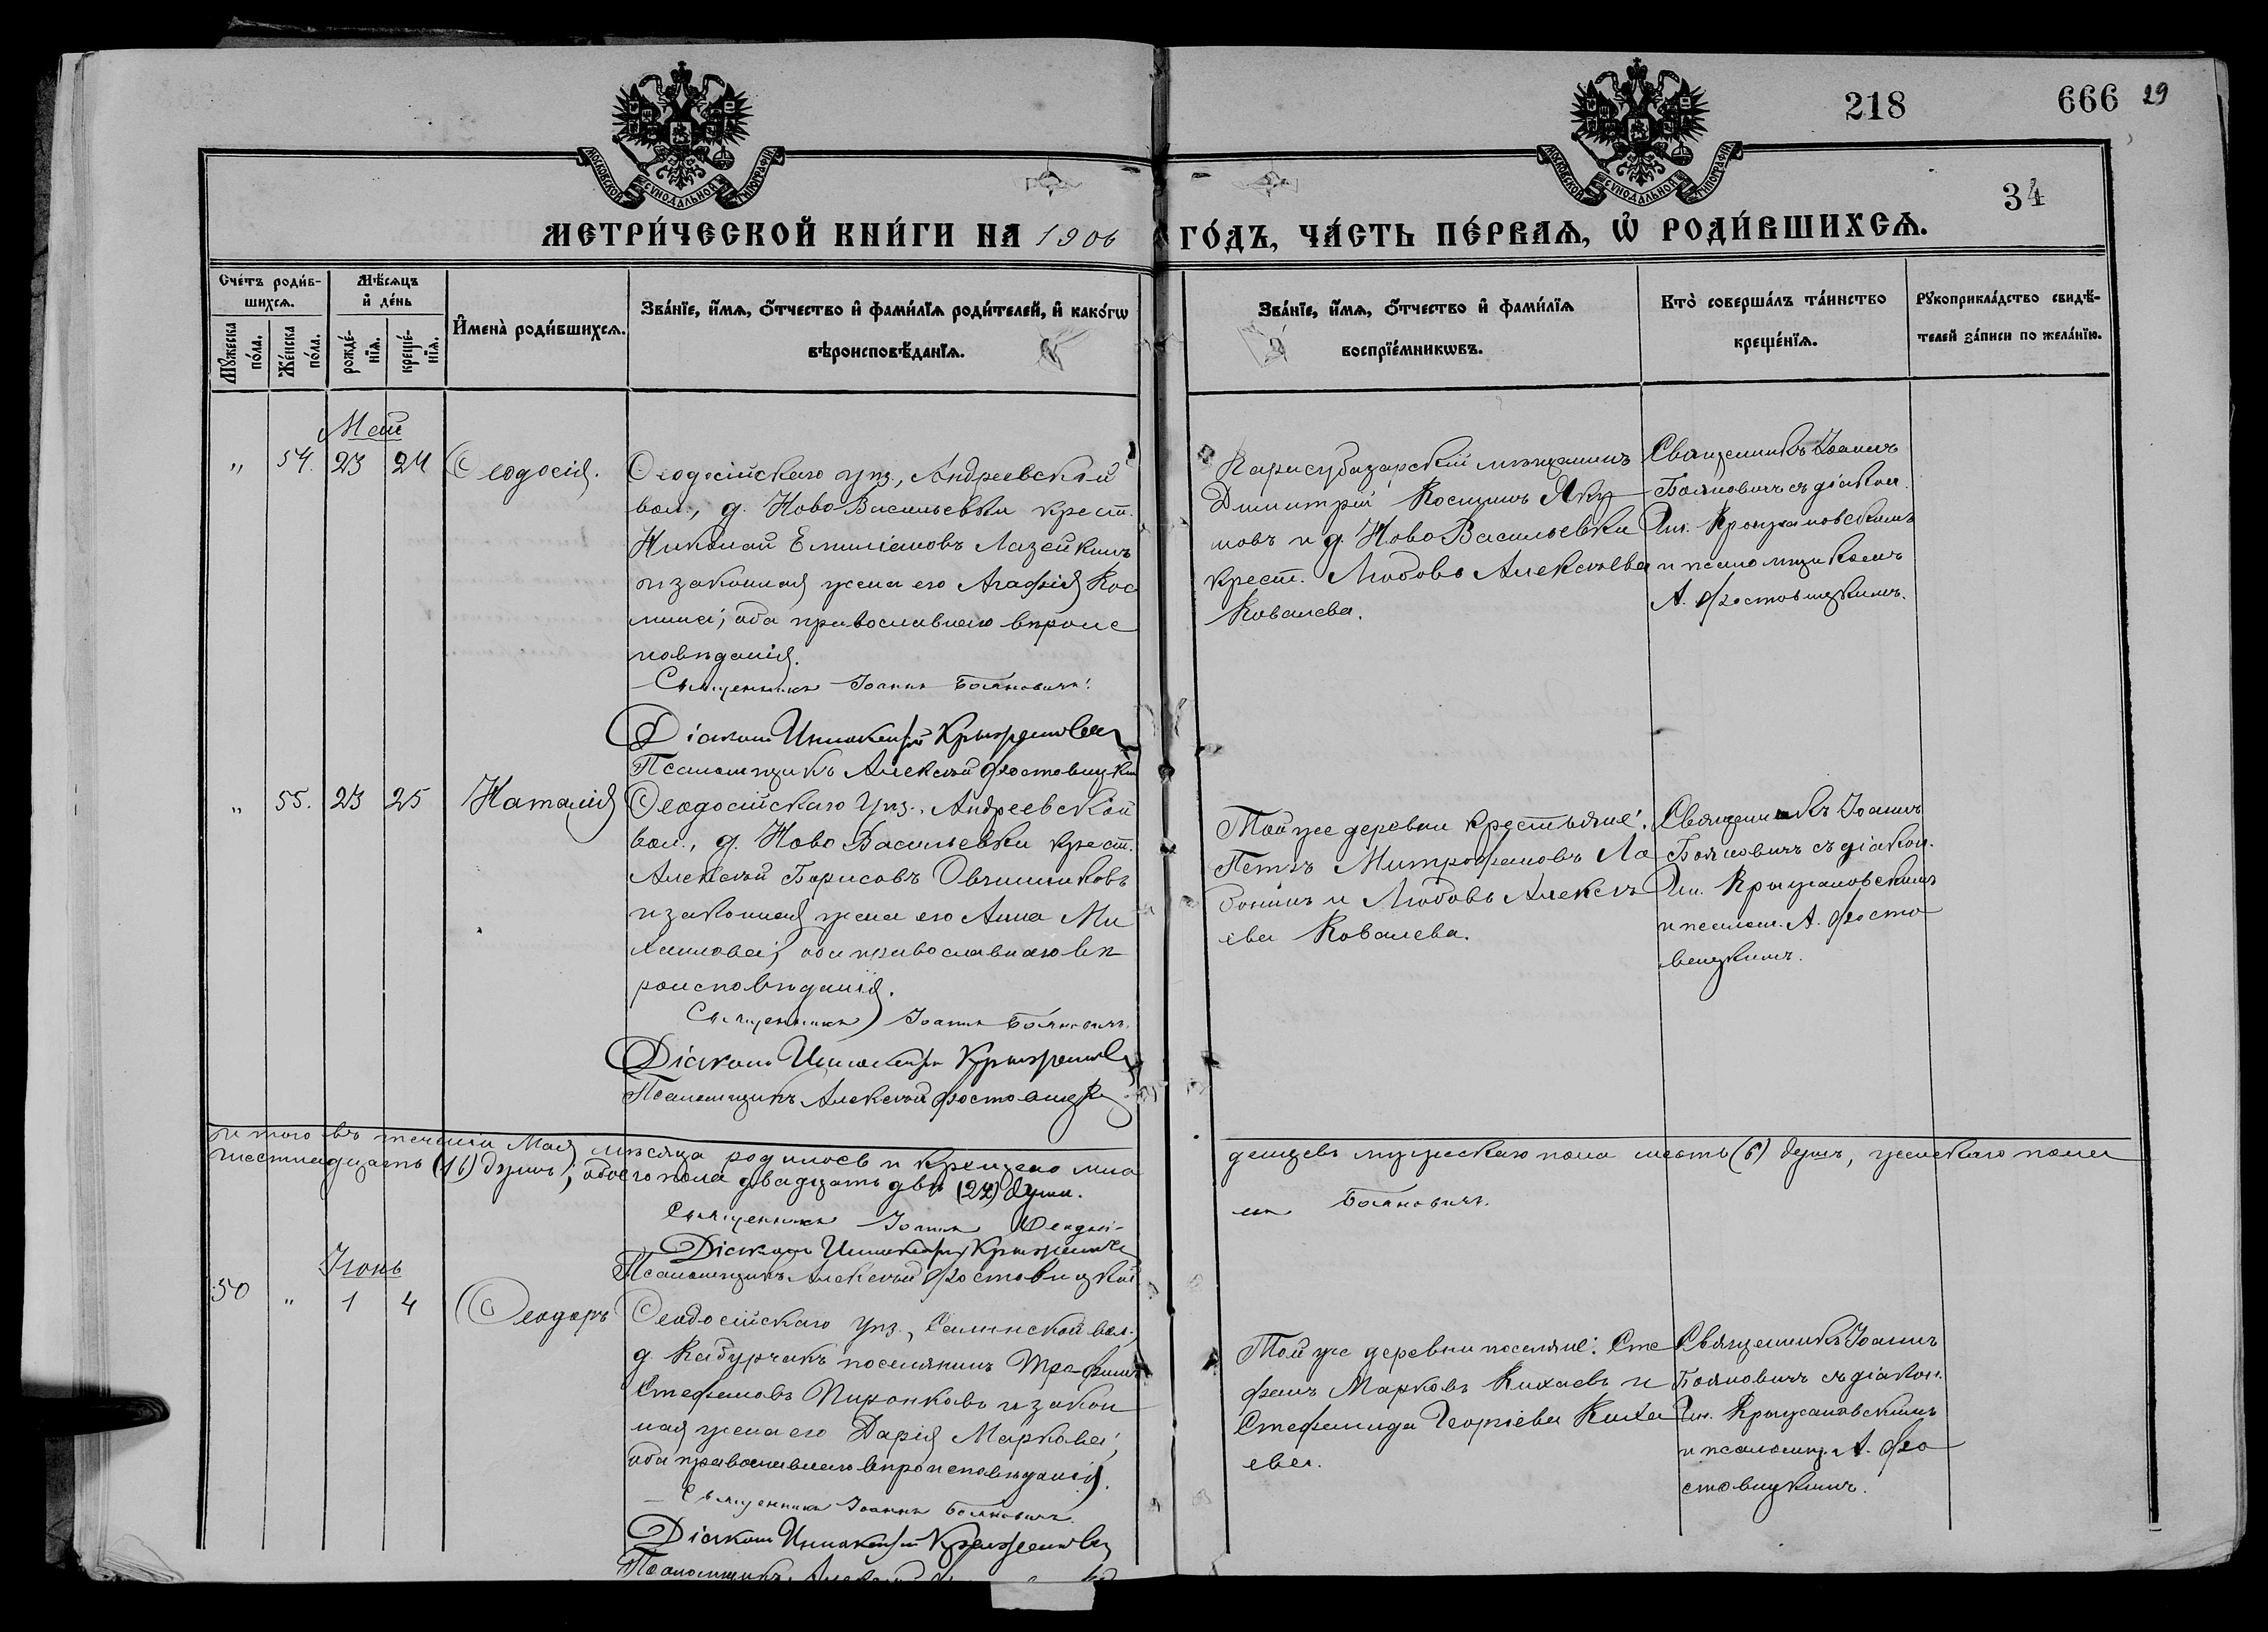 МОСКОВСКОЙ СѴНОДАЛЬНОЙ ТИПОГРАФІИ
МОСКОВСКОЙ СѴНОДАЛЬНОЙ ТИПОГРАФІИ
218
666 29
34
МЕТРИ́ЧЕСКОЙ КНИ́ГИ НА 1906 ГО́ДЪ, ЧА́СТЬ ПЕ́РВАѦ, Ѡ҆ РОДИ́ВШИХСѦ.
Сче́тъ роди́в-
шихсѧ.
Мꙋ́жеска по́ла.
Же́нска по́ла.
Мѣ́сѧцъ
и҆ де́нь
рожде́-нїѧ.
креще́-нїѧ.
И҆мена̀ роди́вшихсѧ.
Зва́нїе, и҆́мѧ, ѻ҆́тчество и҆ фами́лїѧ роди́телей, и҆ како́гѡ
вѣроисповѣ́данїѧ.
Зва́нїе, и҆́мѧ, ѻ҆́тчество и҆ фами́лїѧ
воспрїе́мникѡвъ.
Кто̀ соверша́лъ та́инство
креще́нїѧ.
Рꙋкоприкла́дство свидѣ́-
телей за́писи по жела́нїю.
Май
" 54. 23 24 Ѳеодосія.
Ѳеодосійскаго уѣз., Андреевской
вол., д. Ново Васильевки крест.
Николай Емиліановъ Лазейкинъ
и законная жена его Агафія Кос
мина; оба православнаго вѣроис
повѣданія.
Священникъ Іоаннъ Бояновичъ.
Діаконъ Иннокентій Крыжановскі
Псаломщикъ Алексѣй Фостовицкі
Карасубазарскій мѣщанинъ
Димитрій Косминъ Яку
новъ и д. Ново Васильевки
крест. Любовь Алексѣева
Ковалева.
Священникъ Іоаннъ
Бояновичъ съ діакон.
Ин. Крыжановскимъ
и псаломщикомъ
А. Фостовицкимъ.
" 55. 23 25 Наталія
Ѳеодосійскаго Уѣз., Андреевской
вол., д. Ново Васильевки крест.
Алексѣй Борисовъ Овчинниковъ
и законная жена его Анна Ми
хаилова; оба православнаго вѣ
роисповѣданія.
Священникъ Іоаннъ Бояновичъ.
Діаконъ Иннокентій Крыжановс
Псаломщикъ Алексѣй Фостовицк
Той же деревни крестьяне:
Петръ Митрофановъ Ла
бонинъ и Любовь Алексѣ
ева Ковалева.
Священникъ Іоаннъ
Бояновичъ съ діакон.
Ин. Крыжановскимъ
и псалом. А. Фосто
вицкимъ.
Итого въ теченіи Мая мѣсяца родилось и крещено мла
денцевъ мужескаго пола шесть (6) душъ, женскаго пола
шестнадцать (16) душъ; обоего пола двадцать двѣ (22) души.
Священникъ Іоаннъ
Бояновичъ.
Діаконъ Иннокентій Крыжановск
Псаломщикъ Алексѣй Фостовицкій
Іюнь
50 " 1 4 Ѳеодоръ
Ѳеодосійскаго уѣз., Салынской вол.
д. Кабурчакъ поселянинъ Трофимъ
Стефановъ Пиронковъ и закон
ная жена его Дарія Маркова;
оба православнаго вѣроисповѣданія.
Священникъ Іоаннъ Бояновичъ.
Діаконъ Иннокентій Крыжановск
Псаломщикъ Алексѣй
Той же деревни поселяне: Сте
фанъ Марковъ Кихаевъ и
Стефанида Георгіева Киха
ева.
Священникъ Іоаннъ
Бояновичъ съ діакон.
Ин. Крыжановскимъ
и псаломщ. А. Фо
стовицкимъ.